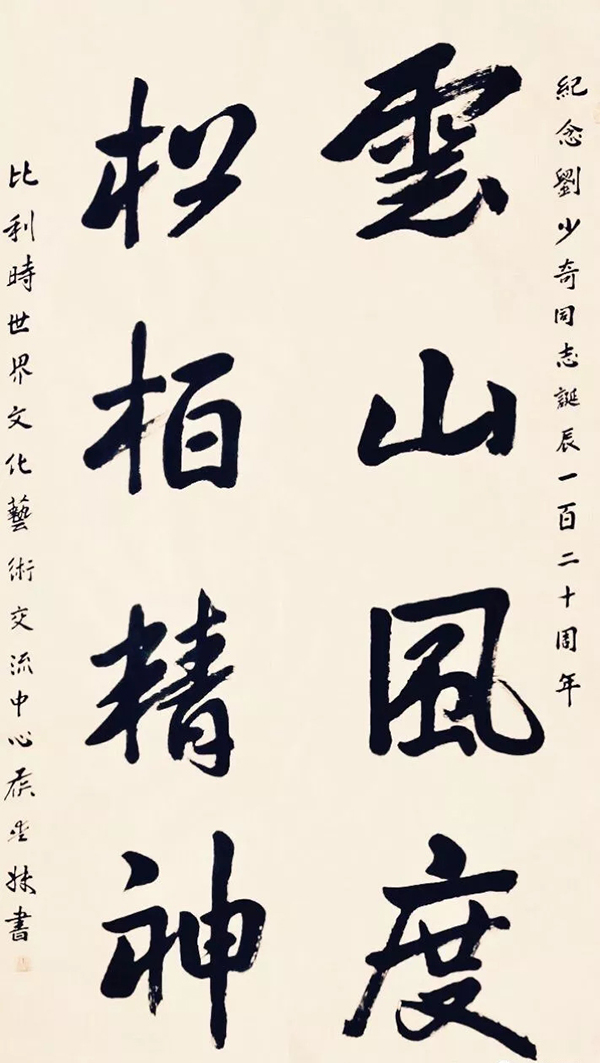 紀念劉少奇同志誕辰一百二十周年
雲山風度
松柏精神
比利時世界文化藝術交流中心 妹書